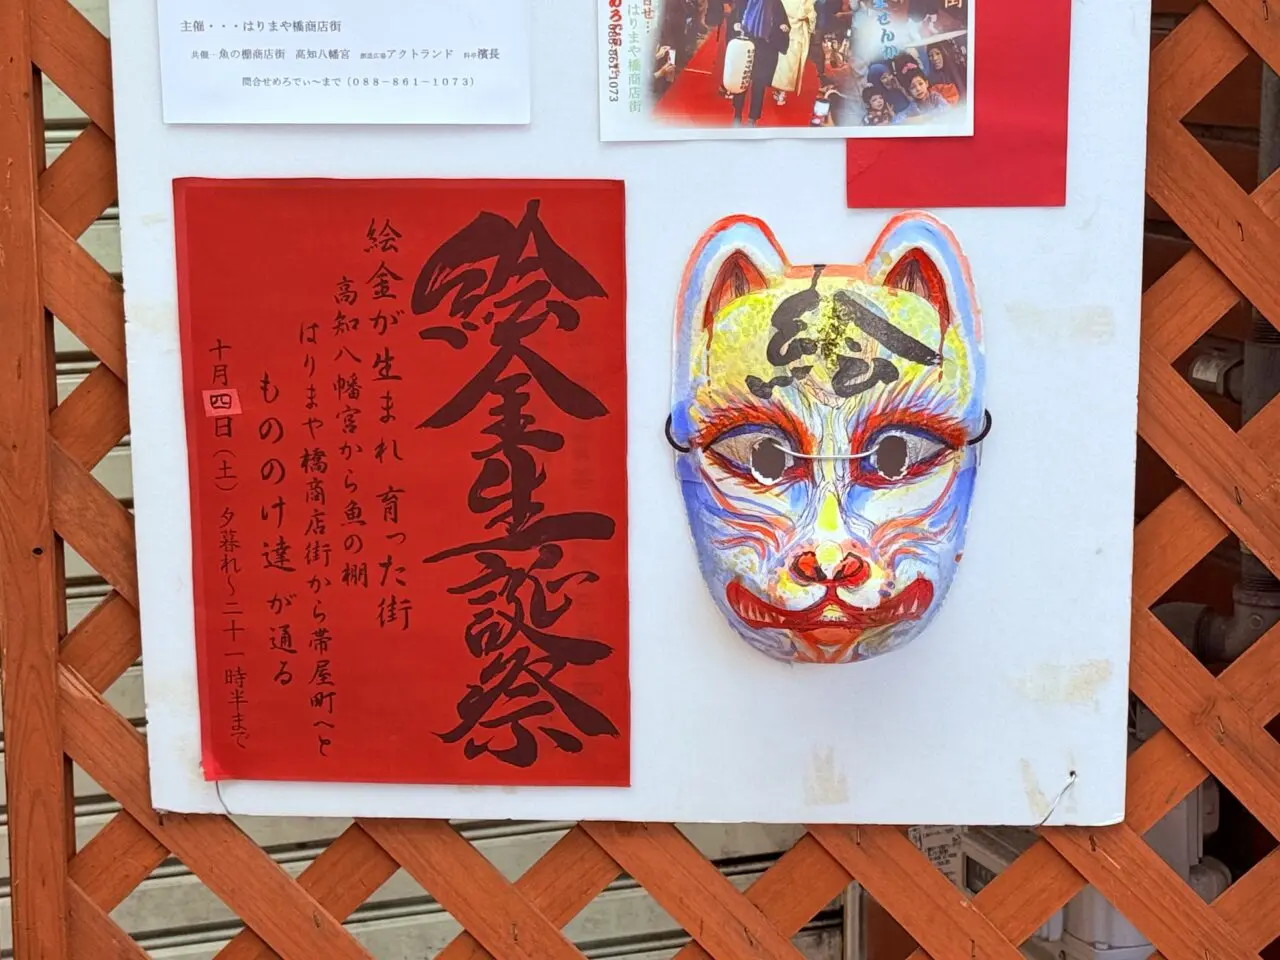 主催・・・はりまや橋商店街
共催…魚の棚商店街　高知八幡宮　創造広場アクトランド　料亭濱長
問合せめろでぃ〜まで（０８８－８６１－１０７３）
はりまや橋商店街
絵金生誕祭
絵金が生まれ 育った街
高知八幡宮から魚の棚
はりまや橋商店街から帯屋町へと
もののけ達が通る
十月四日（土）夕暮れ〜二十一時半まで
絵